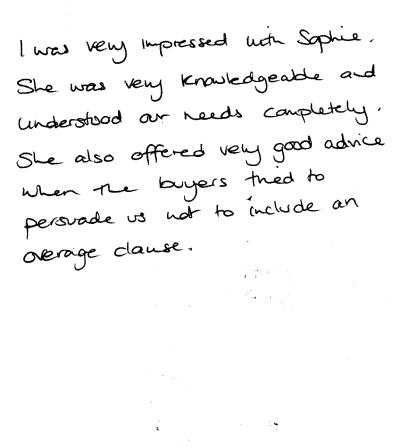 I was very impressed with Sophie.
She was very knowledgeable and
understood our needs completely.
She also offered very good advice
when the buyers tried to
persuade us not to include an
overage clause.